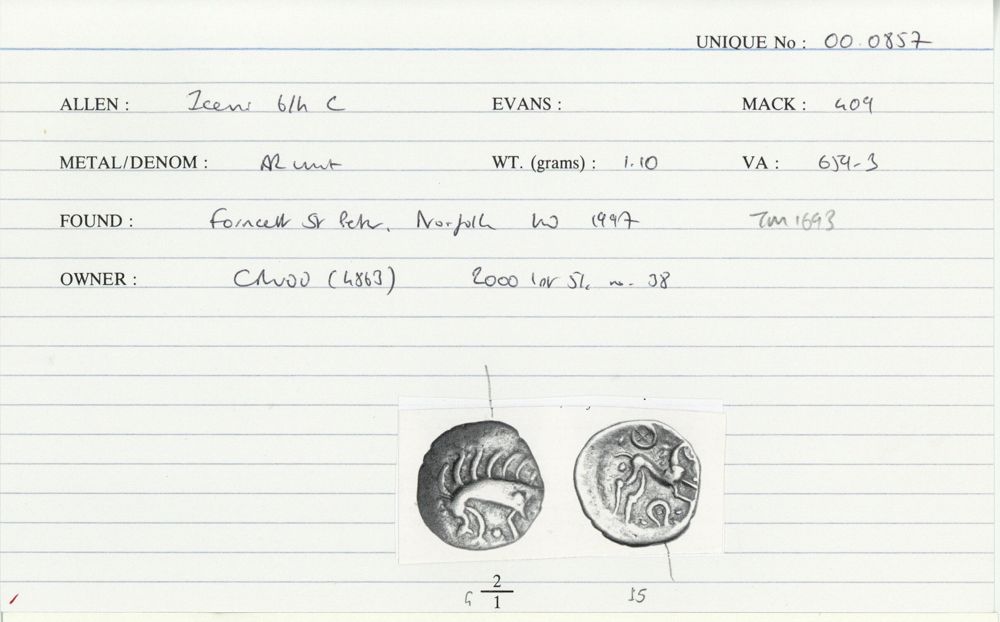 UNIQUE No : 00.0857
ALLEN : Iceni b/h C EVANS : MACK : 409
METAL/DENOM : AR unit WT. (grams) : 1.10 VA : 659-3
FOUND : Forncett St Peter, Norfolk 1997 TM 1693
OWNER : (4863) 2000 no. 38
2
1